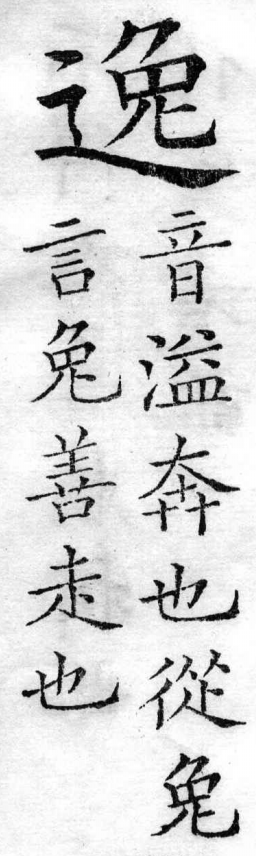 逸
音溢奔也從兔
言兔善走也